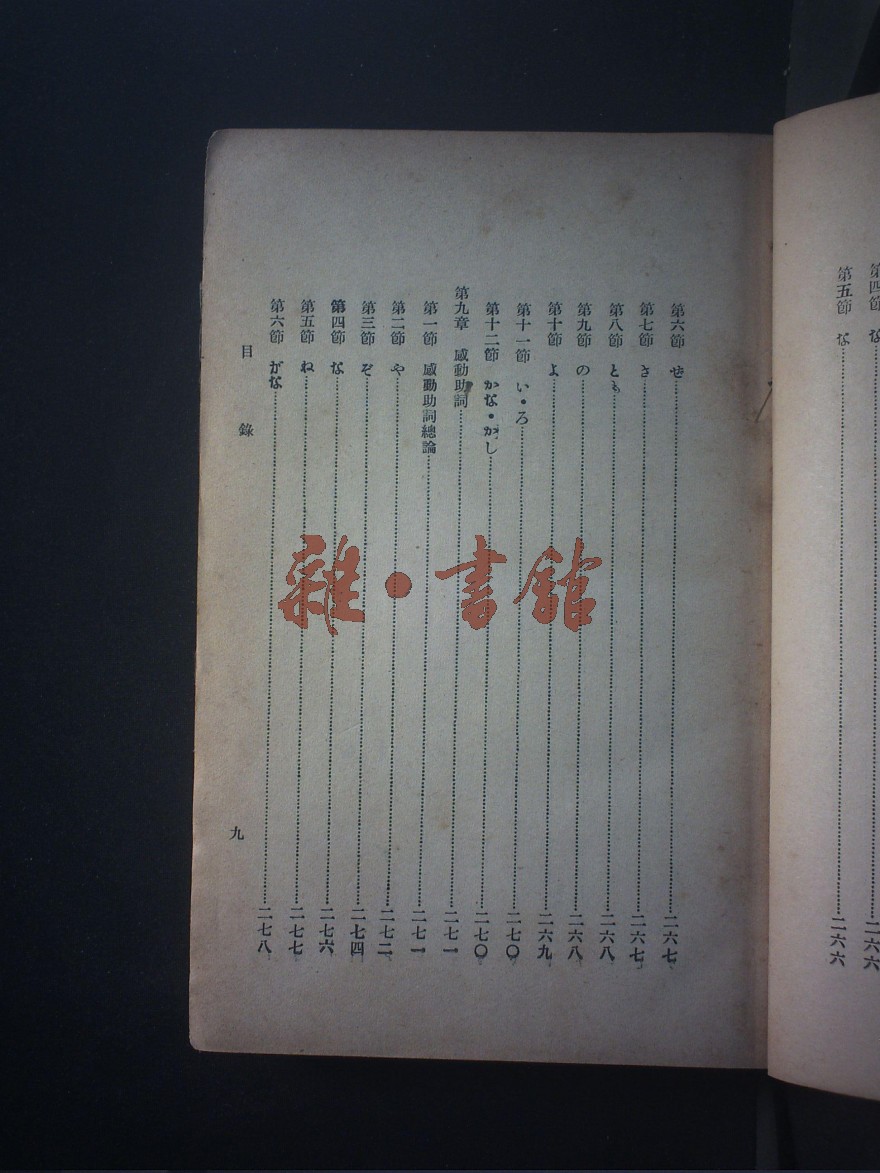 第四節 な……二六六
第五節 な……二六六
第六節 ぜ……二六七
第七節 さ……二六七
第八節 とも……二六八
第九節 の……二六八
第十節 よ……二六九
第十一節 い・ろ……二七〇
第十二節 かな・かし……二七〇
第九章 感動助詞……二七一
第一節 感動助詞總論……二七一
第二節 や……二七二
第三節 ぞ……二七四
第四節 な……二七六
第五節 ね……二七七
第六節 がな……二七八
目錄
九
雜・書館